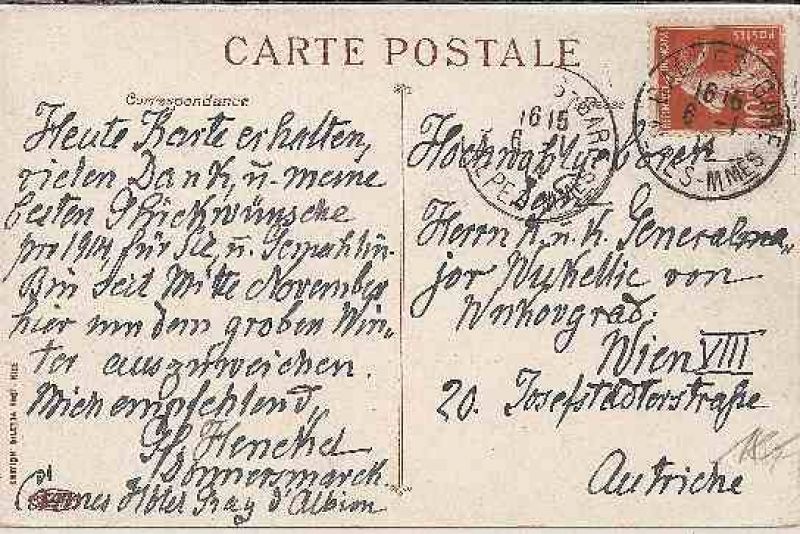 CARTE POSTALE
Correspondance
Heute Karte erhalten,
vielen Dank, u. meine
besten Glückwünsche
pro 1914, für Sie, u. Gemahlin.
Bin seit Mitte November
hier um dem groben Win-
ter auszuweichen.
Mich empfehlend,
Henckel
Donnersmarck
Cannes Hôtel Gray d'Albion
Hochwohlgeboren
Herrn K. u. K. Generalma-
jor Wukellic von
Wukovgrad.
Wien VIII
20. Josefstädterstraße
Autriche
POSTES
16 15
6
16 15
6 - 1
ALPES-MMES